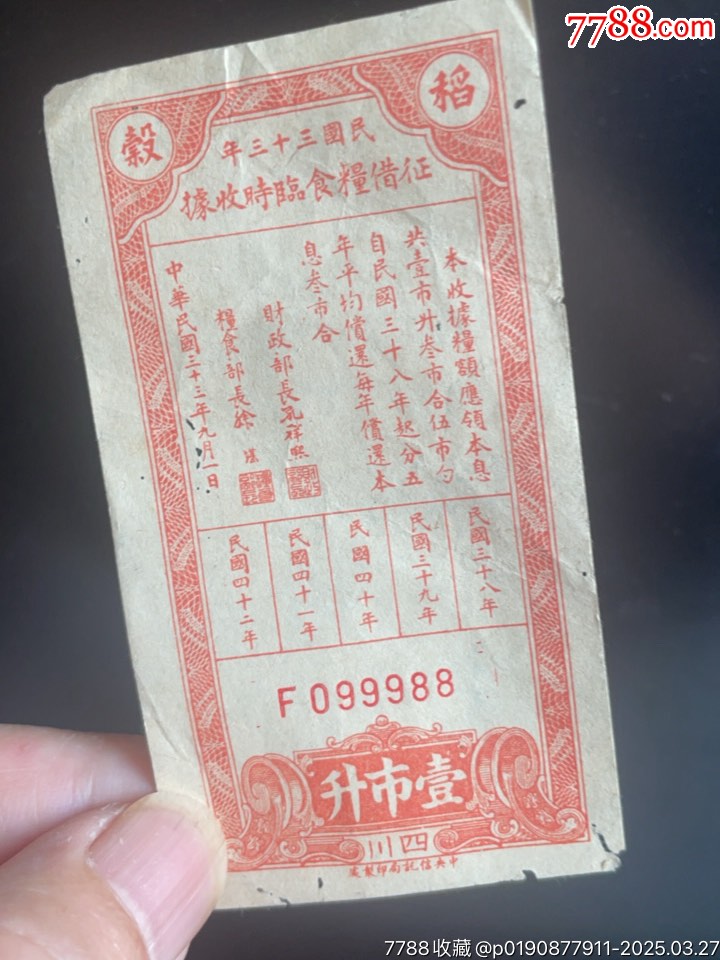 7788.com
稻
穀
民國三十三年
征借糧食臨時收據
本收據糧額應領本息
共壹市升叁市合伍市勺
自民國三十八年起分五
年平均償還每年償還本
息叁市合
財政部長孔祥熙
糧食部長徐堪
中華民國三十三年九月一日
民國三十八年
民國三十九年
民國四十年
民國四十一年
民國四十二年
F099988
壹市升
四川
中央信託局印製處
7788收藏 @p0190877911-2025.03.27